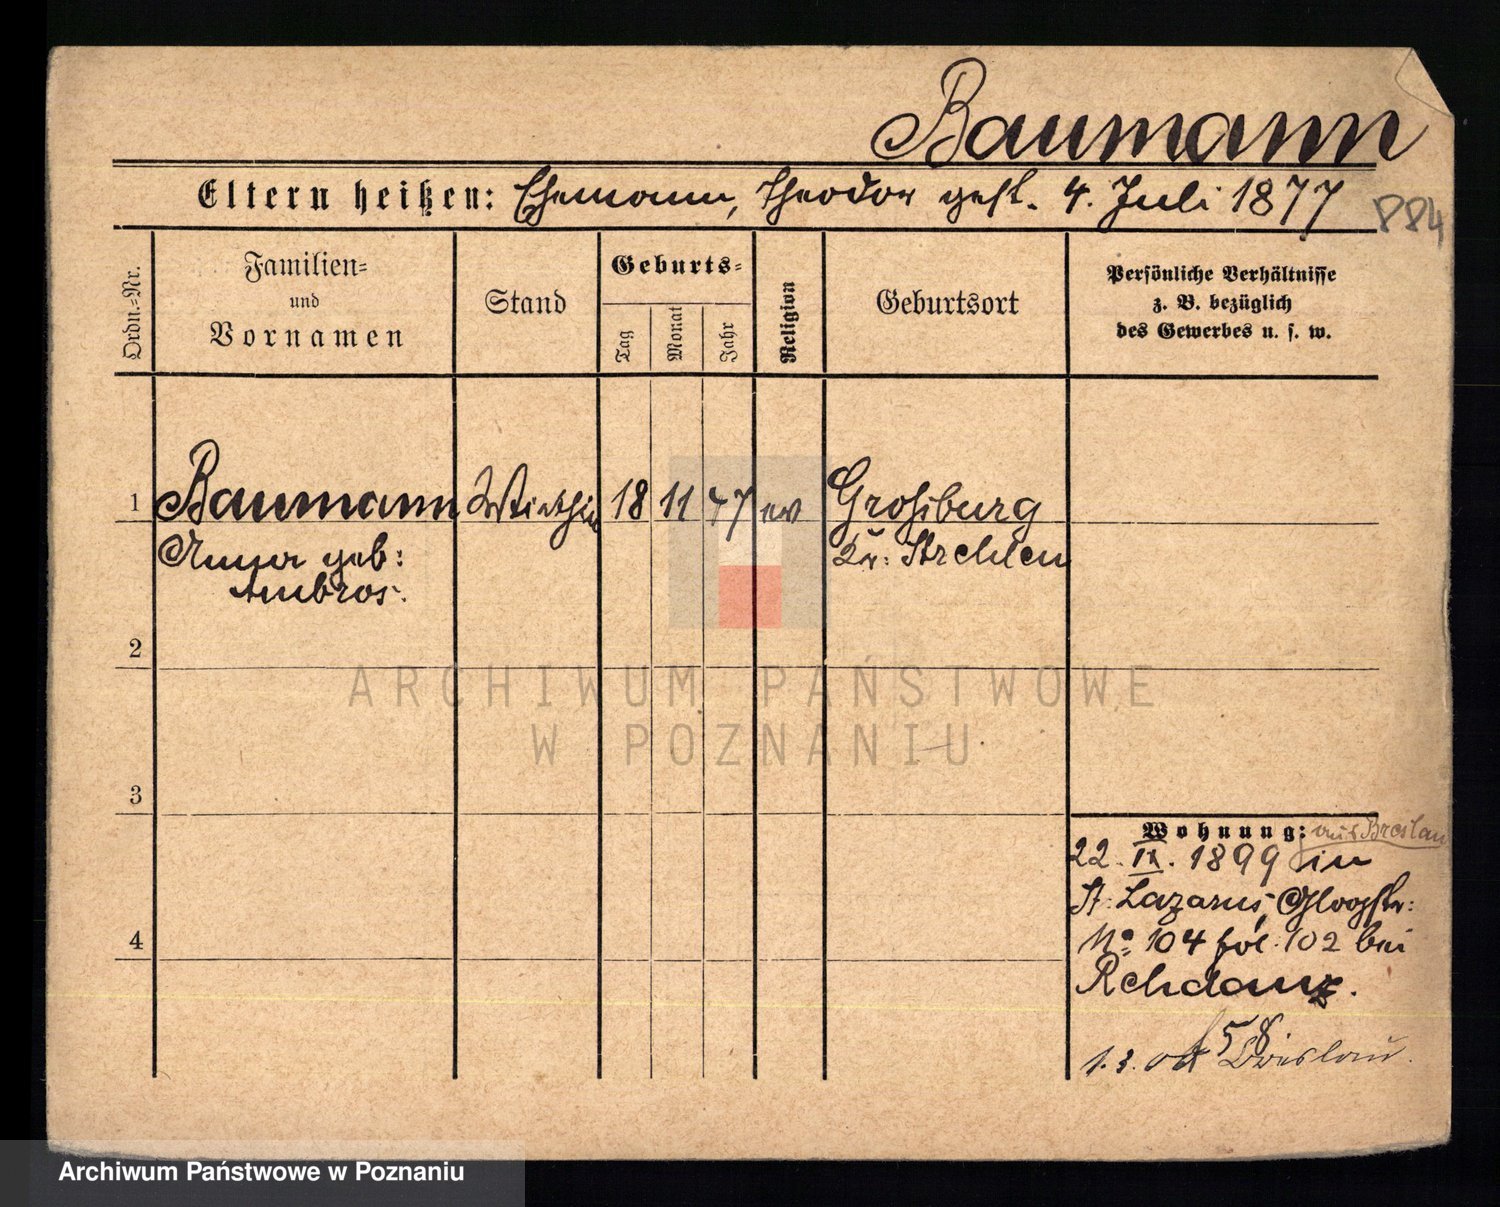 Baumann
Eltern heißen: Ehemann, Theodor gest. 4. Juli 1877
884
Ordn.=Nr.
Familien=
und
Vornamen
Stand
Geburts=
Tag
Monat
Jahr
Religion
Geburtsort
Persönliche Verhältnisse
z. B. bezüglich
des Gewerbes u. s. w.
1 Baumann Wirthin 18 11 47 ev Großburg
Anna geb: Kr: Strehlen
Ambros.
2
ARCHIWUM PAŃSTWOWE
W POZNANIU
3
Wohnung: aus Breslau
22. IX. 1899 in
St: Lazarus, Glogstr:
No 104 fol. 102 bei
Rehdanz.
f 58
1. 3. 01 Breslau.
4
Archiwum Państwowe w Poznaniu